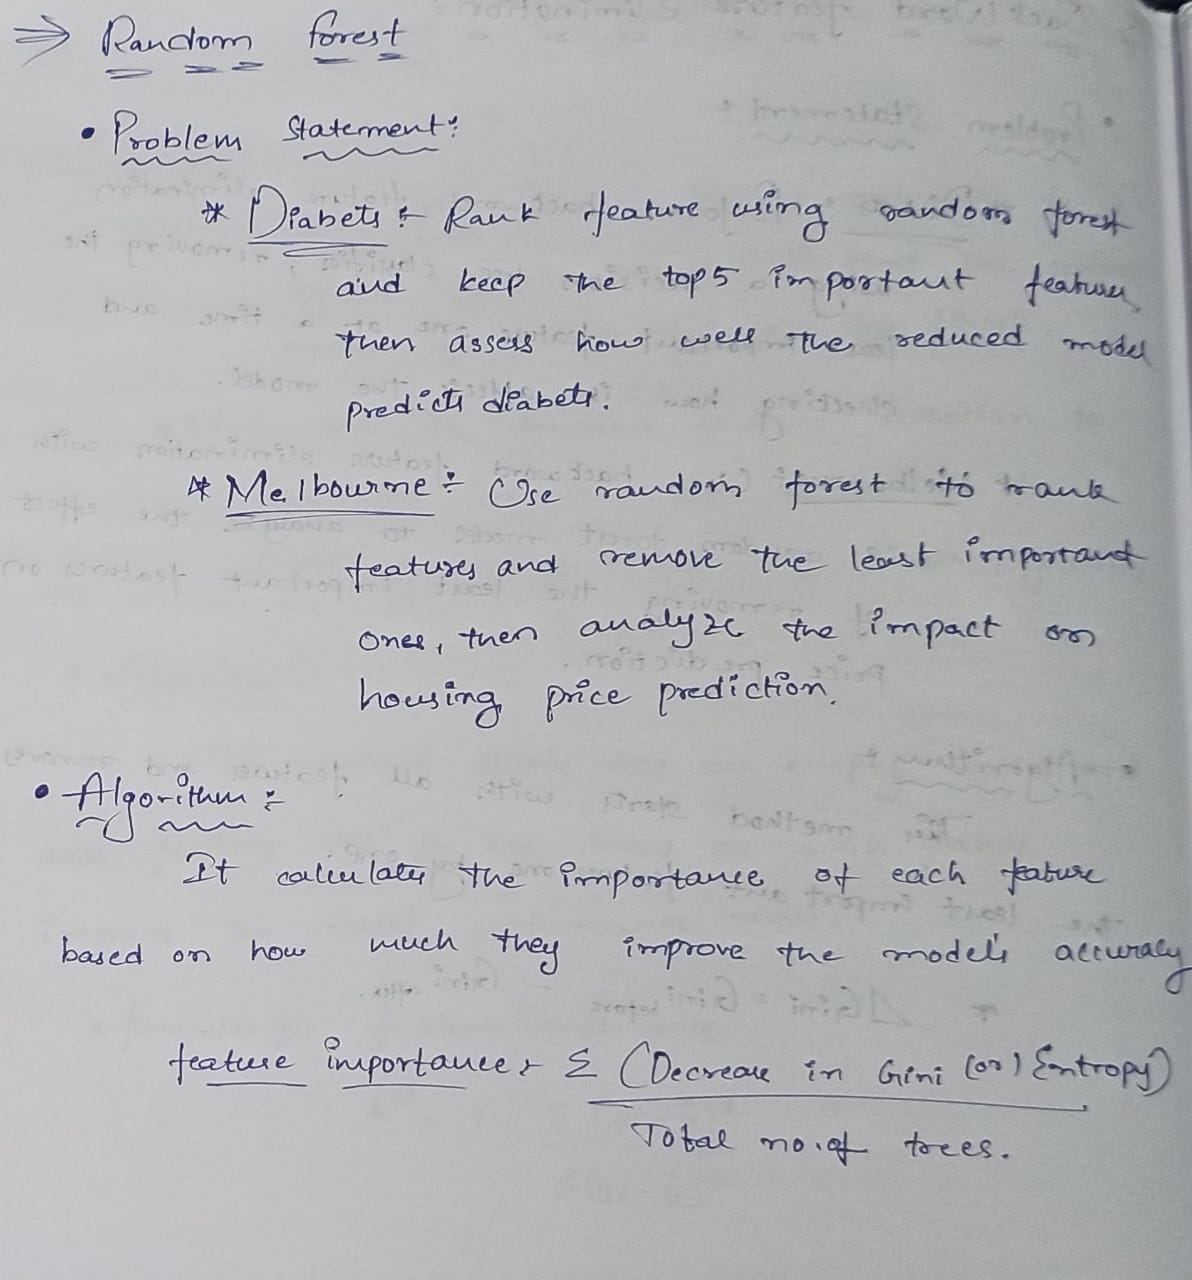 ⇒ Random forest
• Problem Statement:
* Diabets: Rank feature using random forest
and keep the top 5 important features
then assess how well the reduced model
predicts diabets.
* Melbourne: Use random forest to rank
features and remove the least important
ones, then analyze the impact on
housing price prediction.
• Algorithm:
It calculates the importance of each feature
based on how much they improve the model's accuracy
feature importance: Σ (Decrease in Gini (or) Entropy)
Total no. of trees.